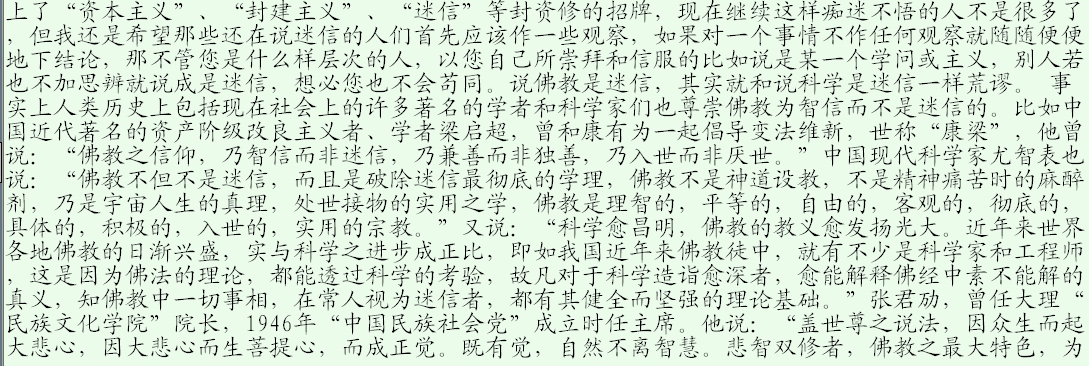 上了“资本主义”、“封建主义”、“迷信”等封资修的招牌，现在继续这样痴迷不悟的人不是很多了
，但我还是希望那些还在说迷信的人们首先应该作一些观察，如果对一个事情不作任何观察就随随便便
地下结论，那不管您是什么样层次的人，以您自己所崇拜和信服的比如说是某一个学问或主义，别人若
也不加思辨就说成是迷信，想必您也不会苟同。说佛教是迷信，其实就和说科学是迷信一样荒谬。 事
实上人类历史上包括现在社会上的许多著名的学者和科学家们也尊崇佛教为智信而不是迷信的。比如中
国近代著名的资产阶级改良主义者、学者梁启超，曾和康有为一起倡导变法维新，世称“康梁”，他曾
说：“佛教之信仰，乃智信而非迷信，乃兼善而非独善，乃入世而非厌世。”中国现代科学家尤智表也
说：“佛教不但不是迷信，而且是破除迷信最彻底的学理，佛教不是神道设教，不是精神痛苦时的麻醉
剂，乃是宇宙人生的真理，处世接物的实用之学，佛教是理智的，平等的，自由的，客观的，彻底的，
具体的，积极的，入世的，实用的宗教。”又说：“科学愈昌明，佛教的教义愈发扬光大。近年来世界
各地佛教的日渐兴盛，实与科学之进步成正比，即如我国近年来佛教徒中，就有不少是科学家和工程师
，这是因为佛法的理论，都能透过科学的考验，故凡对于科学造诣愈深者，愈能解释佛经中素不能解的
真义，知佛教中一切事相，在常人视为迷信者，都有其健全而坚强的理论基础。”张君劢，曾任大理“
民族文化学院”院长，1946年“中国民族社会党”成立时任主席。他说：“盖世尊之说法，因众生而起
大悲心，因大悲心而生菩提心，而成正觉。既有觉，自然不离智慧。悲智双修者，佛教之最大特色，为